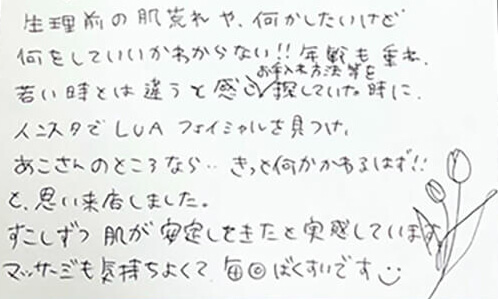 生理前の肌荒れや、何かしたいけど
何をしていいかわからない!! 年齢も重ね、
若い時とは違うと感じ、お手入れ方法等を探していた時に、
インスタでLUAフェイシャルを見つけ、
あこさんのところなら‥きっと何かかわるはず!!
と、思い来店しました。
すこしずつ肌が安定してきたと実感しています
マッサージも気持ちよくて、毎回ばくすいです